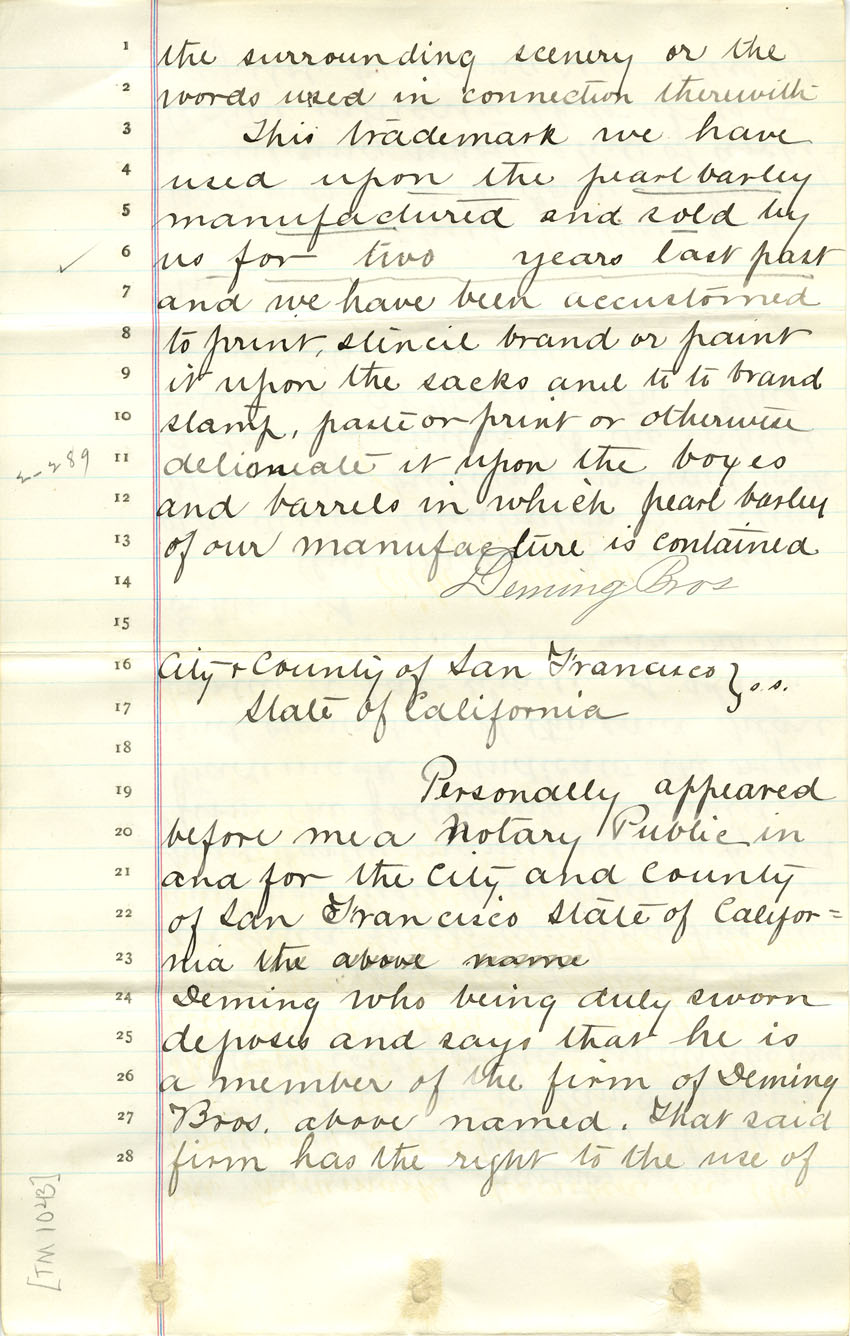 1 the surrounding scenery or the
2 words used in connection therewith
3 This trademark we have
4 used upon the pearl barley
5 manufactured and sold by
6 us for two years last past
7 and we have been accustomed
8 to print, stencil brand or paint
9 it upon the sacks and to to brand
10 stamp, paste or print or otherwise
11 deliniate it upon the boxes
2-289
12 and barrels in which pearl barley
13 of our manufacture is contained
14 Deming Bros
15
16 City & County of San Francisco } s.s.
17 State of California
18
19 Personally appeared
20 before me a Notary Public in
21 and for the City and County
22 of San Francisco State of Califor=
23 nia the above name
24 Deming who being duly sworn
25 deposes and says that he is
26 a member of the firm of Deming
27 Bros. above named. That said
28 firm has the right to the use of
[TM 1043]